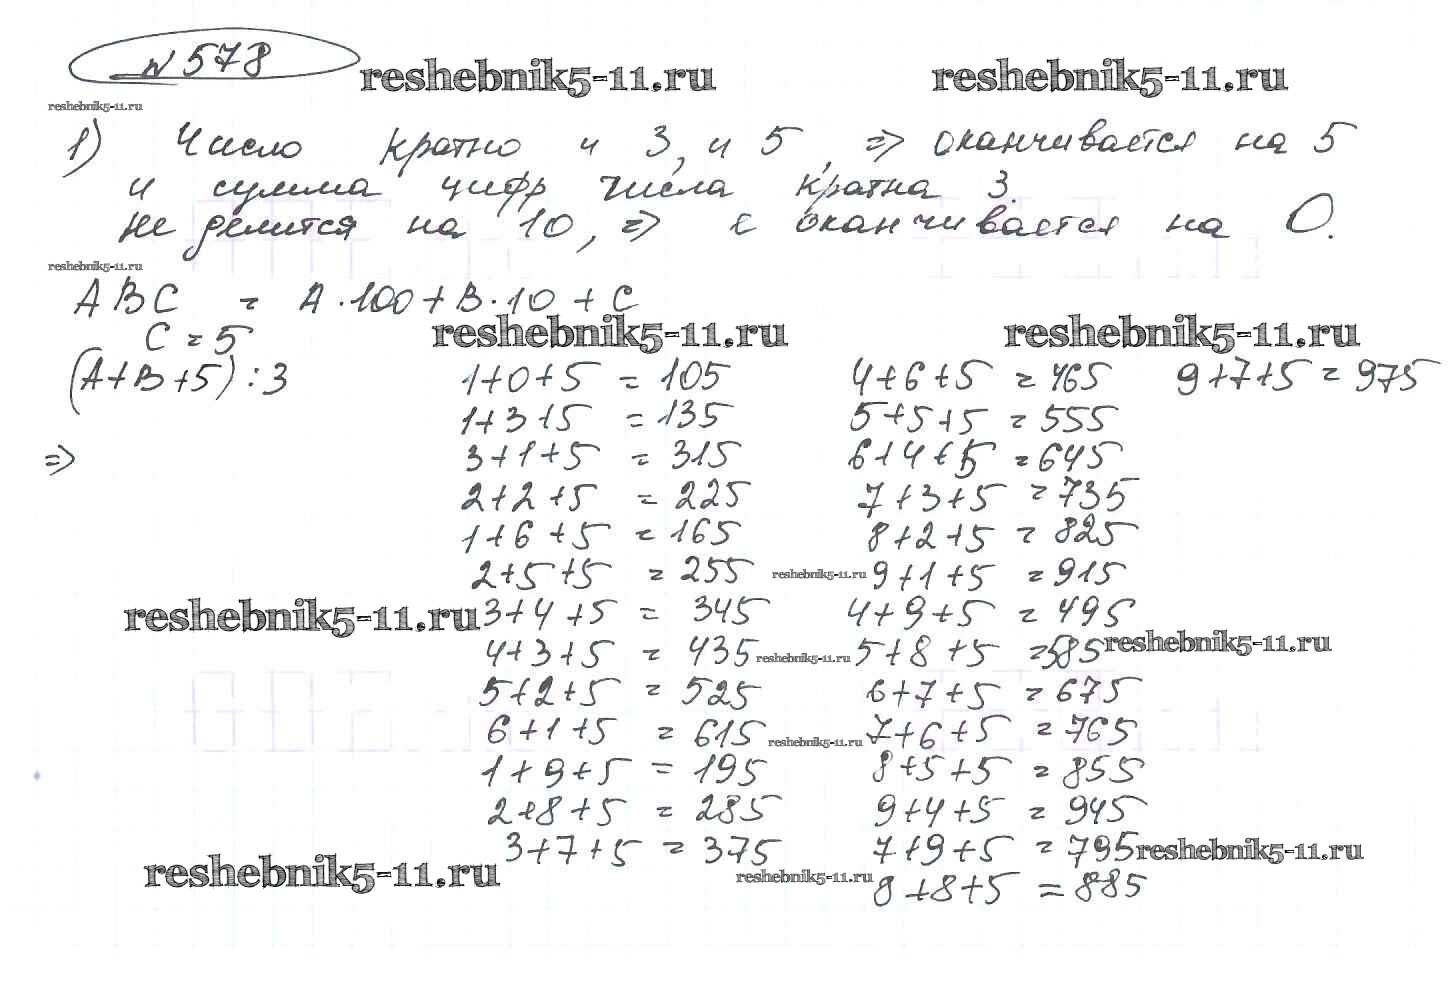 № 578
reshebnik5-11.ru reshebnik5-11.ru
reshebnik5-11.ru
1) Число кратно и 3, и 5, => оканчивается на 5
и сумма цифр числа кратна 3.
не делится на 10, => оканчивается на 0.
reshebnik5-11.ru
ABC = A·100+B·10+C
C=5
reshebnik5-11.ru reshebnik5-11.ru
(A+B+5):3
=>
1+0+5 = 105
1+3+5 = 135
3+1+5 = 315
2+2+5 = 225
1+6+5 = 165
2+5+5 = 255
reshebnik5-11.ru
3+4+5 = 345
4+3+5 = 435
5+2+5 = 525
6+1+5 = 615
1+9+5 = 195
2+8+5 = 285
3+7+5 = 375
reshebnik5-11.ru
4+6+5 = 465
5+5+5 = 555
6+4+5 = 645
7+3+5 = 735
8+2+5 = 825
reshebnik5-11.ru
9+1+5 = 915
4+9+5 = 495
reshebnik5-11.ru
5+8+5 = 585
reshebnik5-11.ru
6+7+5 = 675
reshebnik5-11.ru
7+6+5 = 765
8+5+5 = 855
9+4+5 = 945
7+9+5 = 795
reshebnik5-11.ru
reshebnik5-11.ru
8+8+5 = 885
9+7+5 = 975